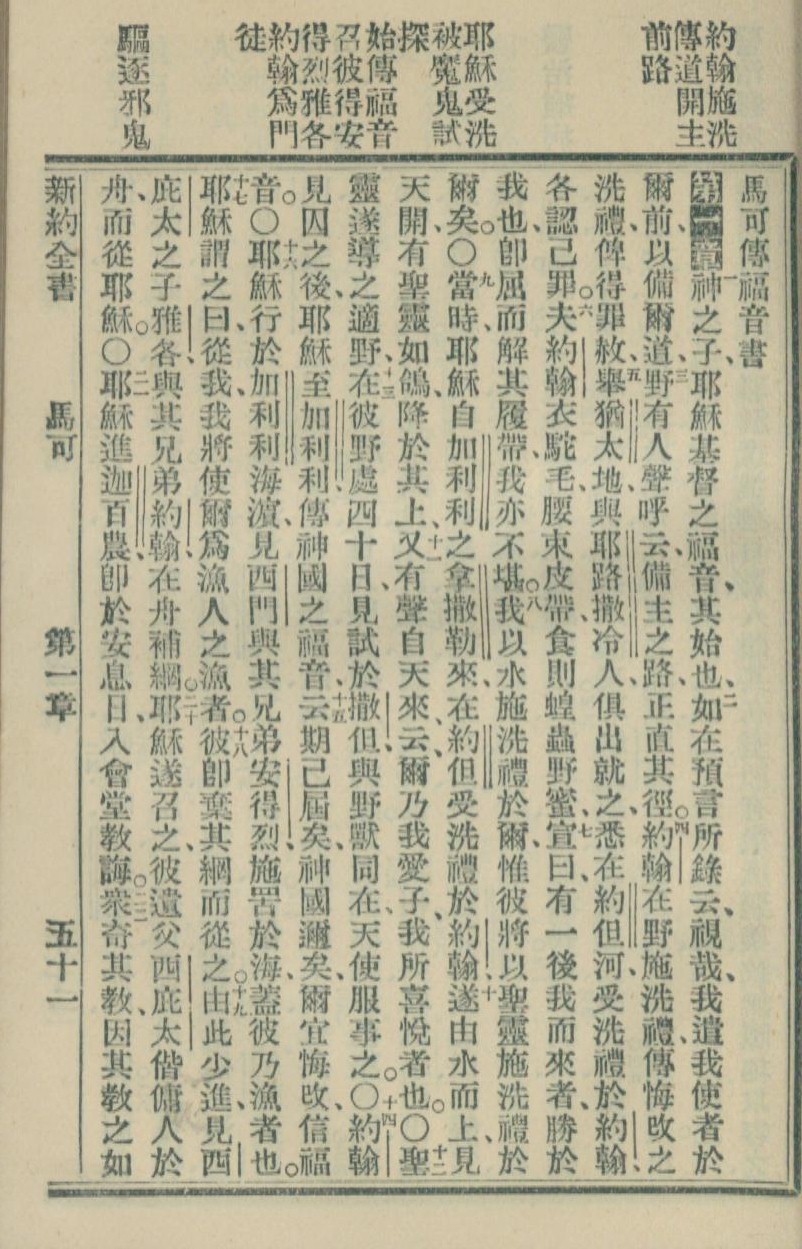 約翰施洗
傳道開主
前路
耶穌受洗
被魔鬼試
探
始傳福音
召彼得安
得烈雅各
約翰爲門
徒
驅逐邪鬼
馬可傳福音書
第一章一神之子、耶穌基督之福音、其始也、二如在預言所錄云、視哉、我遣我使者於
爾前、以備爾道、三野有人聲呼云、備主之路、正直其徑。四約翰在野施洗禮、傳悔改之
洗禮、俾得罪赦、五舉猶太地、與耶路撒冷人、俱出就之、悉在約但河、受洗禮於約翰、
各認己罪。六夫約翰衣駝毛、腰束皮帶、食則蝗蟲野蜜、七宣曰、有一後我而來者、勝於
我也、卽屈而解其履帶、我亦不堪。八我以水施洗禮於爾、惟彼將以聖靈施洗禮於
爾矣。〇九當時、耶穌自加利利之拿撒勒來、在約但受洗禮於約翰、十遂由水而上、見
天開、有聖靈如鴿、降於其上、十一又有聲自天來、云、爾乃我愛子、我所喜悅者也。〇十二聖
靈遂導之適野、十三在彼野處四十日、見試於撒但、與野獸同在、天使服事之。〇十四約翰
見囚之後、耶穌至加利利、傳神國之福音、十五云、期已屆矣、神國邇矣、爾宜悔改、信福
音。〇十六耶穌行於加利利海濱、見西門與其兄弟安得烈、施罟於海、蓋彼乃漁者也。
十七耶穌謂之曰、從我、我將使爾爲漁人之漁者。十八彼卽棄其網而從之。十九由此少進、見西
庇太之子雅各、與其兄弟約翰、在舟補網。二十耶穌遂召之、彼遺父西庇太偕傭人於
舟、而從耶穌。〇二一耶穌進迦百農、卽於安息日、入會堂教誨。二二衆奇其教、因其教之如
新約全書 馬可 第一章 五十一